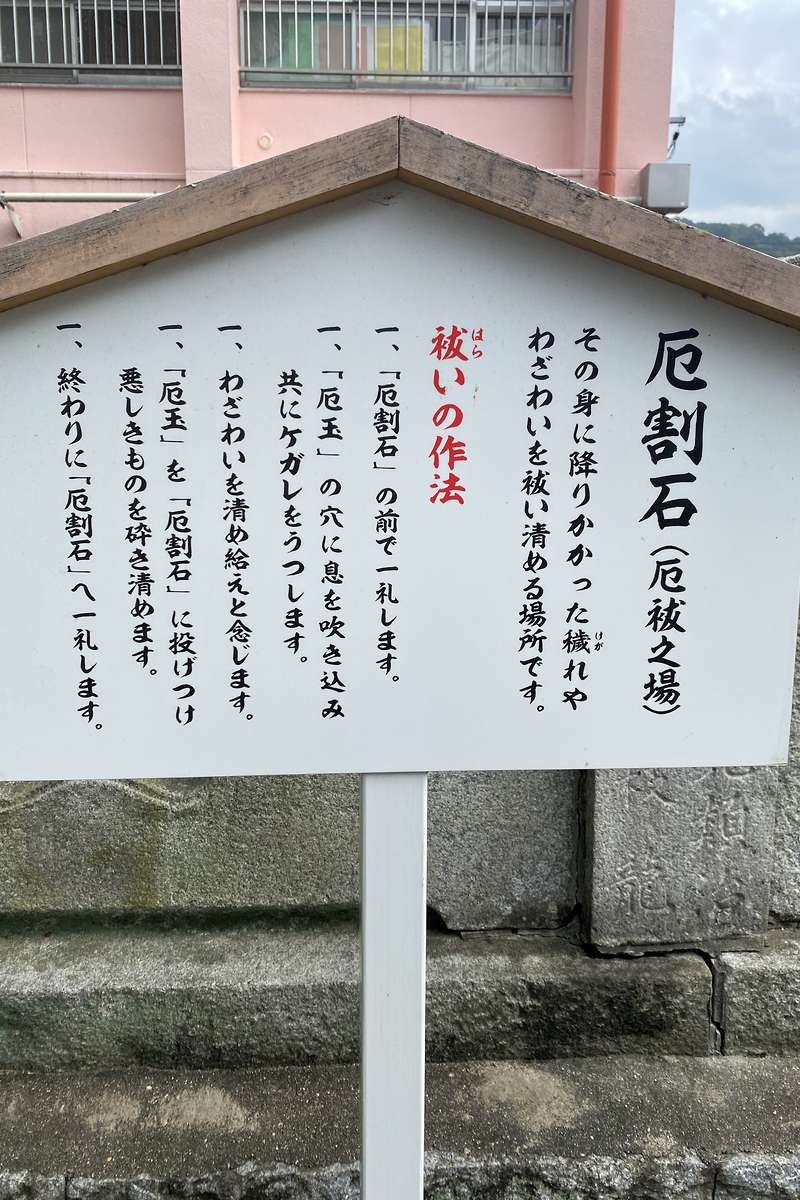 厄割石（厄祓之場）
その身に降りかかった穢れや
けが
わざわいを祓い清める場所です。
祓いの作法
はら
一、「厄割石」の前で一礼します。
一、「厄玉」の穴に息を吹き込み
共にケガレをうつします。
一、わざわいを清め給えと念じます。
一、「厄玉」を「厄割石」に投げつけ
悪しきものを砕き清めます。
一、終わりに「厄割石」へ一礼します。
龍